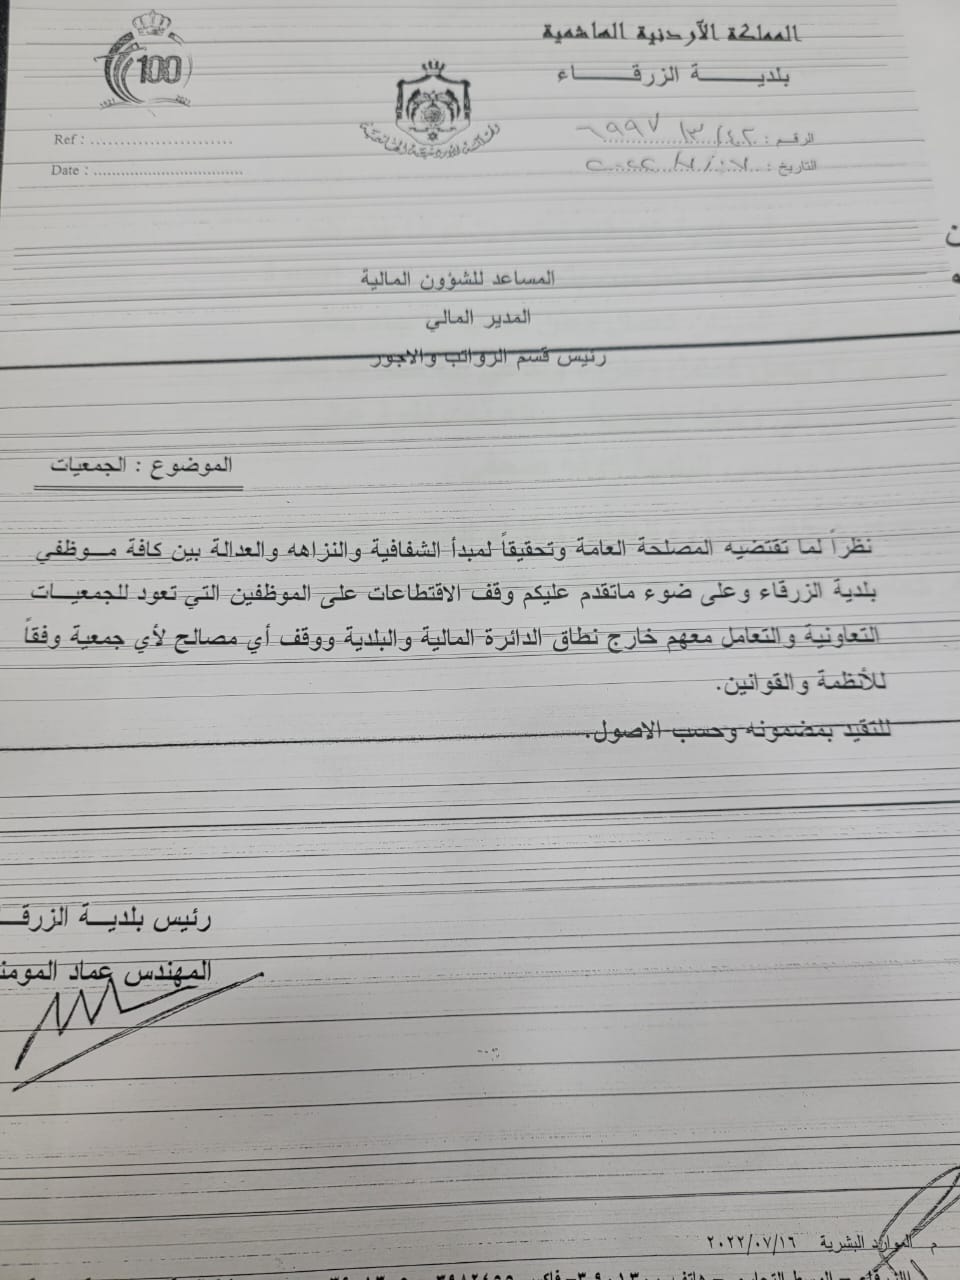 المملكة الأردنية الهاشمية
بلديــــة الزرقــــاء
100
1921 2021
Ref : ........................
Date : ................................
الرقم :
التاريخ :
المساعد للشؤون المالية
المدير المالي
رئيس قسم الرواتب والاجور
الموضوع : الجمعيات
نظراً لما تقتضيه المصلحة العامة وتحقيقاً لمبدأ الشفافية والنزاهه والعدالة بين كافة موظفي
بلدية الزرقاء وعلى ضوء ماتقدم عليكم وقف الاقتطاعات على الموظفين التي تعود للجمعيات
التعاونية والتعامل معهم خارج نطاق الدائرة المالية والبلدية ووقف أي مصالح لأي جمعية وفقاً
للأنظمة والقوانين.
للتقيد بمضمونه وحسب الاصول.
رئيس بلديــة الزرقـ
المهندس عماد المومنـ
م الموارد البشرية ٢٠٢٢/٠٧/١٦